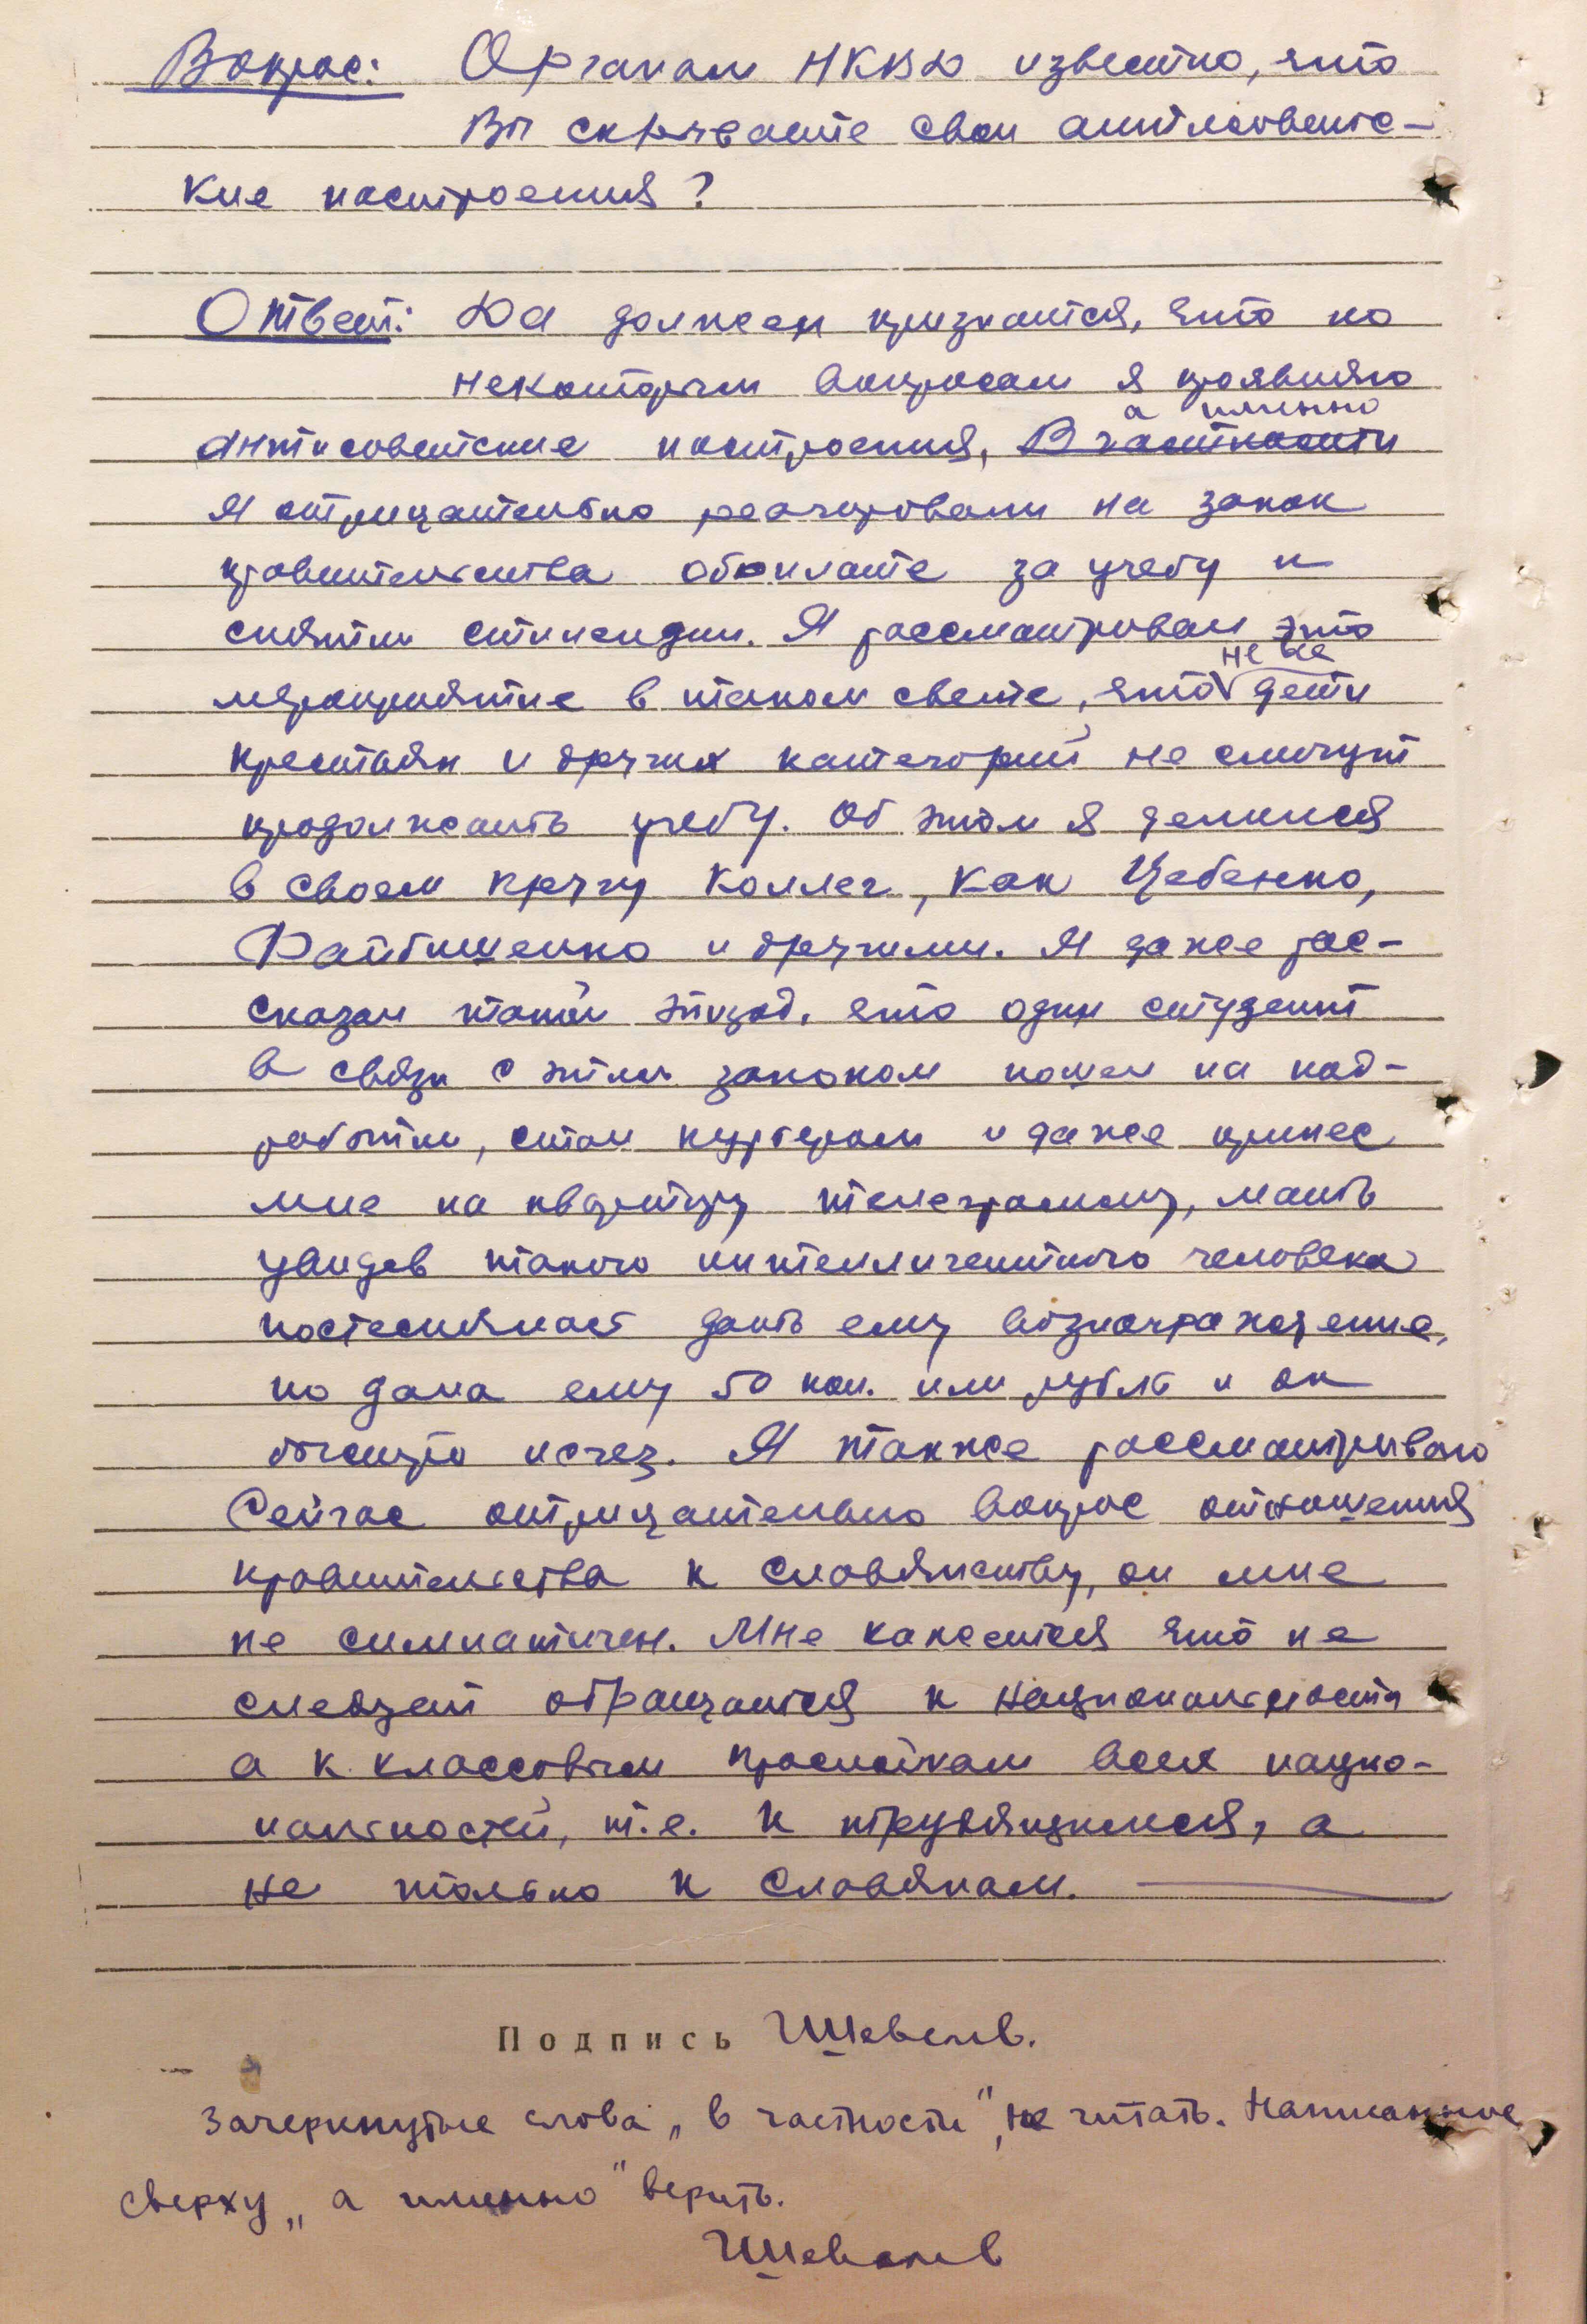 Вопрос: Органам НКВД известно, что
Вы скрываете свои антисоветс-
кие настроения?
Ответ: Да должен признатся, что по
некоторым вопросам я проявляю
а именно
антисоветские настроения, В частности
я отрицательно реагировали на закон
правительства об оплате за учебу и
снятии стипендии. Я рассматривал это
не все
мероприятие в таком свете, что дети
крестьян и других категорий не смогут
продолжать учебу. Об этом я делился
в своем кругу коллег, как Цебенко,
Файбишенко и другими. Я даже рас-
сказал такой эпизод, что один студент
в связи с этим законом пошел на под-
работки, стал курьером и даже принес
мне на квартиру телеграмму, мать
увидев такого интеллигентного человека
постеснялась дать ему вознаграждение,
но дала ему 50 коп. или рубль и он
быстро исчез. Я также рассматриваю
сейчас отрицательно вопрос отношения
правительства к славянству, он мне
не симпатичен. Мне кажется что не
следует обращатся к национальности
а к классовым прослойкам всех нацио-
нальностей, т.е. к трудящимся, а
не только к славянам.
Подпись Шевелев.
Зачеркнутые слова „в частности", не читать. Написанное
сверху „а именно" верить.
Шевелев